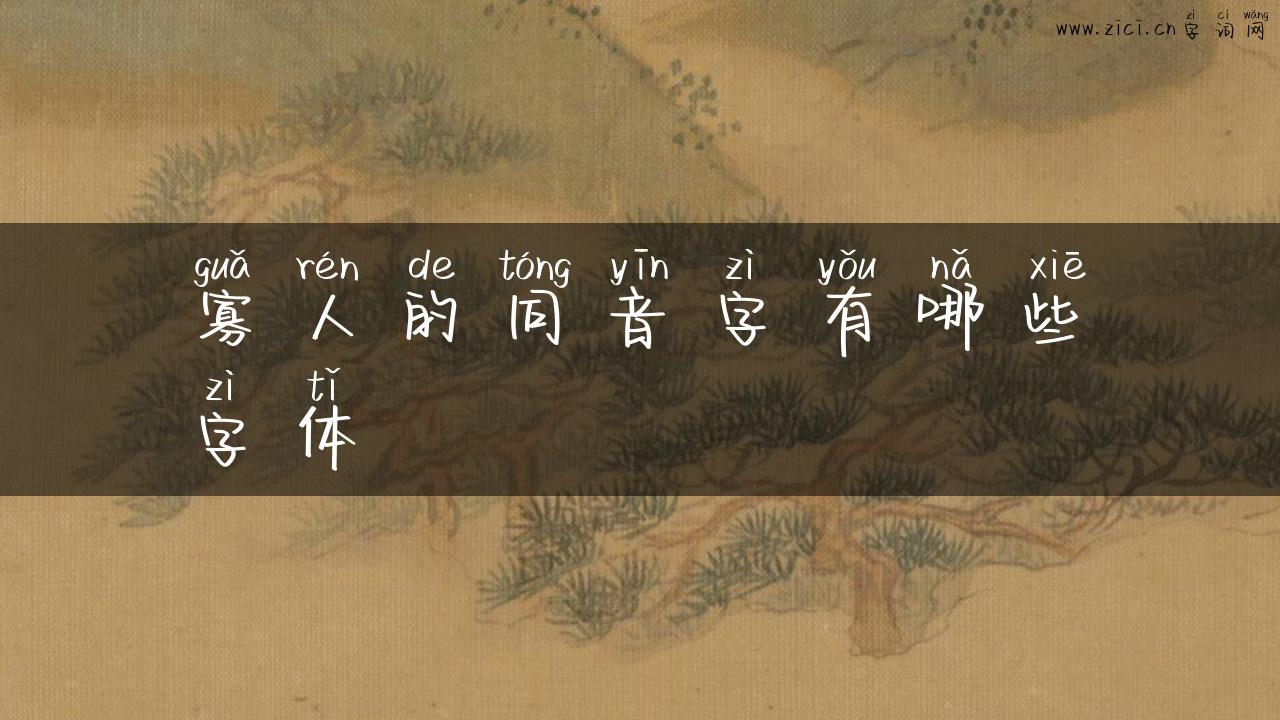 zì cí wǎng
www.zici.cn 字词网
guǎ rén de tóng yīn zì yǒu nǎ xiē
寡人的同音字有哪些
zì tǐ
字体